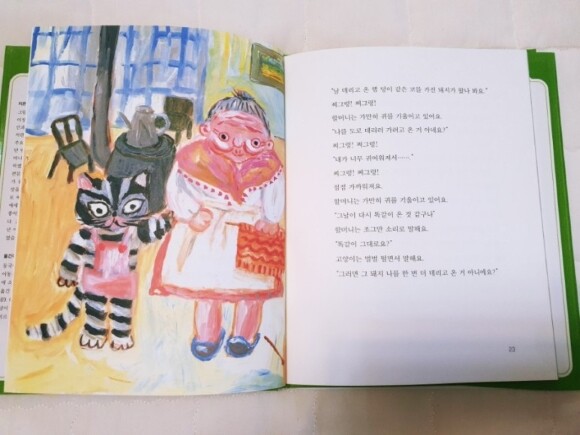 "날 데리고 온 병 앞이 같은 코를 가진 돼지가 왔나 봐요."
삐그덩! 삐그덩!
할머니는 가만히 귀를 기울이고 있어요.
"너를 도로 데리러 가려고 온 거 아네요?"
삐그덩! 삐그덩!
"내가 너무 귀여워져서……."
삐그덩! 삐그덩!
점점 가까워져요.
할머니는 가만히 귀를 기울이고 있어요.
"그날이 다시 똑같이 온 것 같구나."
할머니는 조그만 소리로 말해요.
"똑같이 그대로요?"
고양이는 벌벌 떨면서 말해요.
"그러면 그 돼지 나를 한 번 더 데리고 온 거 아니에요?"
23